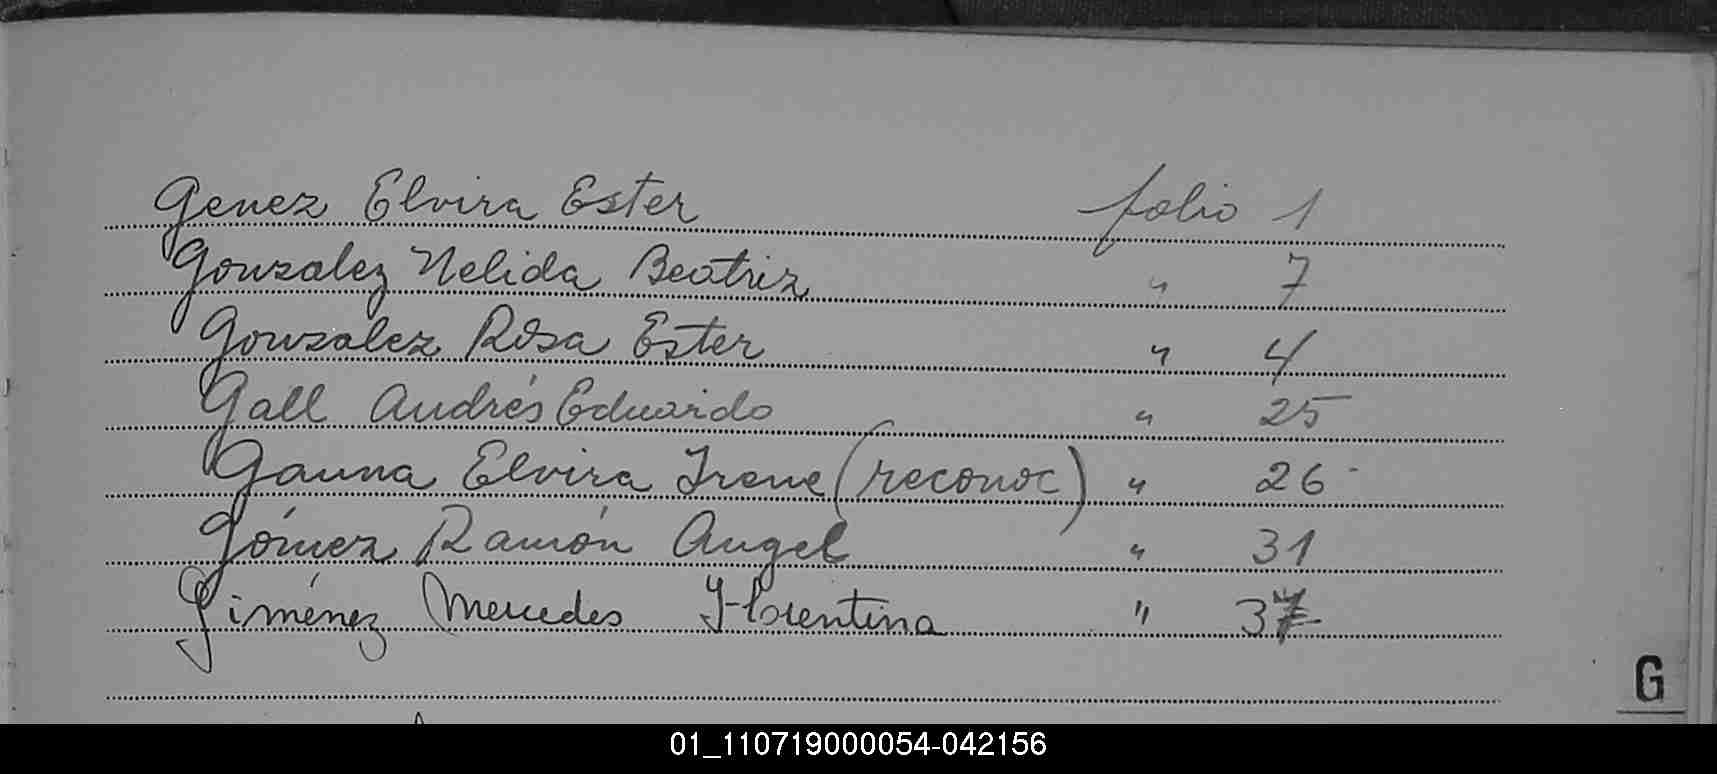 Genez Elvira Ester folio 1
Gonzalez Nelida Beatriz " 7
Gonzalez Rosa Ester " 4
Gall Andrés Eduardo " 25
Gauna Elvira Irene (reconoc) " 26
Gómez Ramón Angel " 31
Giménez Mercedes Florentina " 37
G
01_110719000054-042156